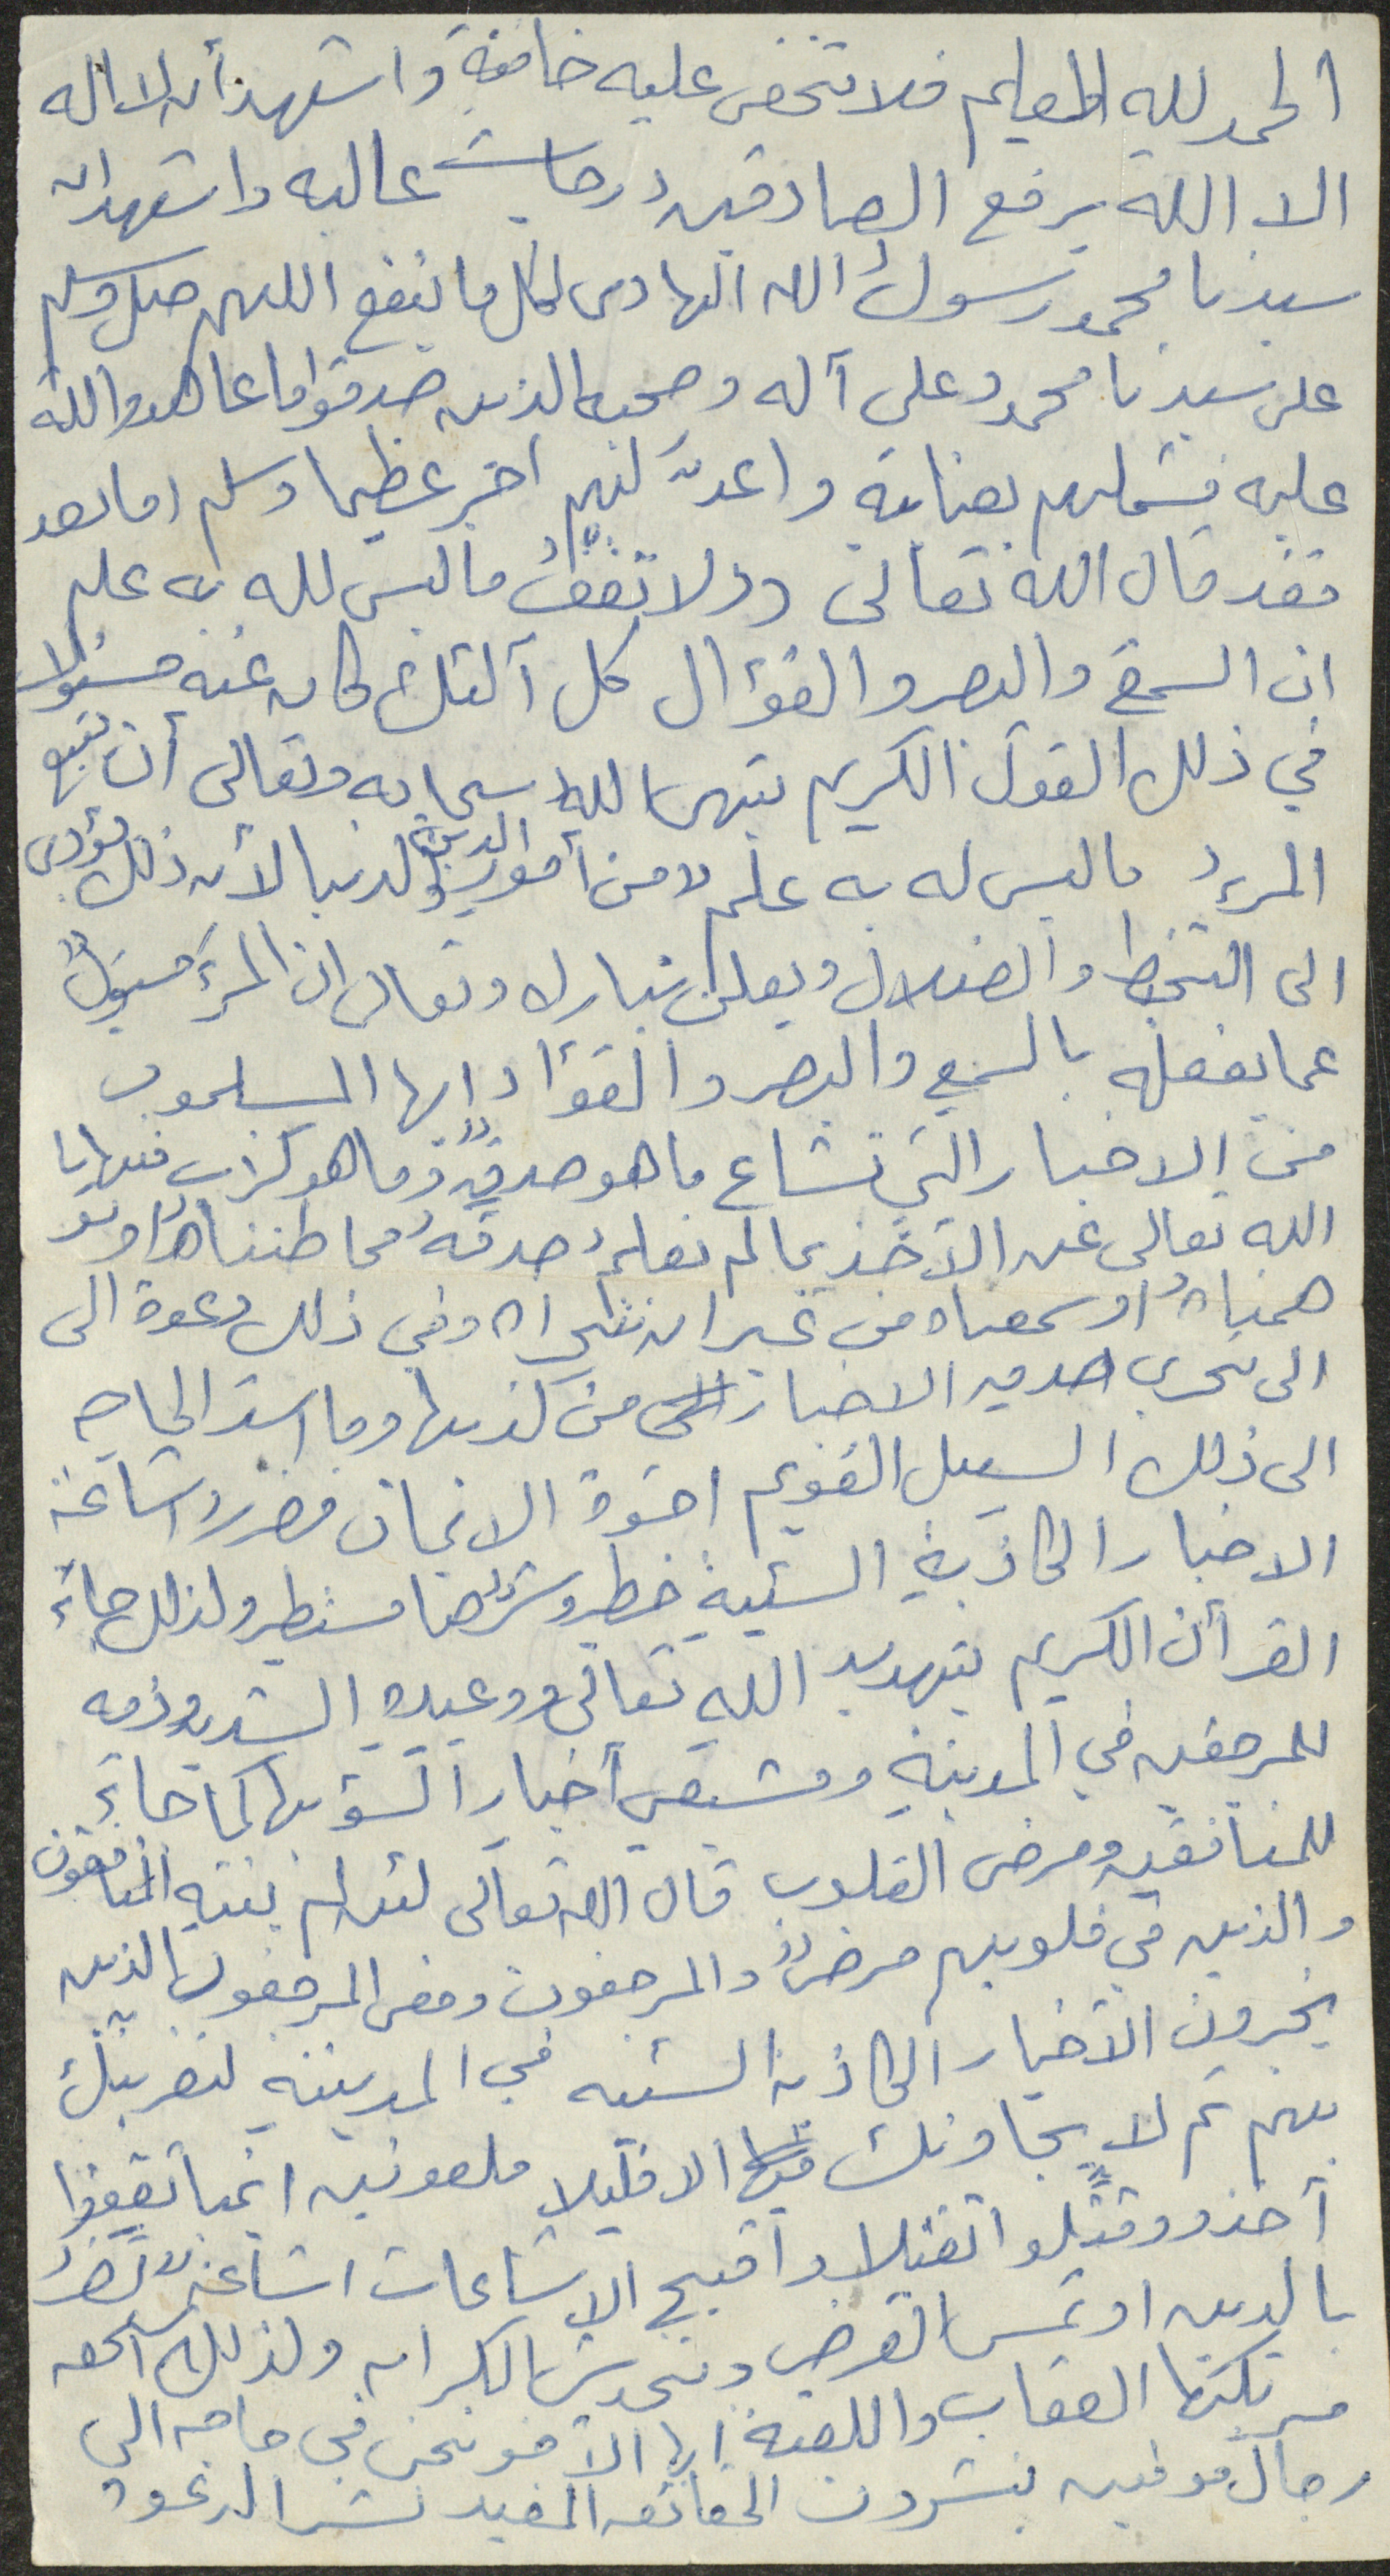 الحمد لله العليم فلا تخفى عليه خافية واشهد أن لا اله
الا الله يرفع الصادقين درجات عاليه واشهد ان
سيدنا محمد رسول الله الهادى لكل ما ينفع اللهم صل وسلم
على سيدنا محمد وعلى آله وصحبه الذين صدقوا ما عاهدوا الله
عليه فشملهم بعنايته واعد لهم اجر عظيما وسلم اما بعد
فقد قال الله تعالى ولا تقف ما ليس لله به علم
ان السمع والبصر والفؤال كل آلئك كان عنه مسئولا
في ذلك القول الكريم ينهى الله سبحانه وتعالى أن يتبع
المرء ما ليس له به علم من أمور الدين والدنيا لأن ذلك يؤدى
الى التخبط والضلال ويعلن تبارك وتعالى ان المرء مسئول
عما يفعله بالسمع والبصر والفؤاد ايها المسلمون
من الاخبار التي تشاع ما هو صدق وما هو كذب فنهانا
الله تعالى عن الأخذ بما لم نعلم صدقه مما ظنناه او تو
همناه او سمعناه من غير ان نتحراه وفي ذلك دعوة الى
الى تحرى صدق الاخبار من كذبها وما اشد الحاجه
الى ذلك السبيل القويم اخوة الايمان فضرر اشاعة
الاخبار الكاذبة السيئة خطر وشرها مستطير ولذلك جاء
القرأن الكريم بتهديد الله تعالى ووعيده الشديد وذمه
للمرجفين في المدينة ومشيعي أخبار السؤ بها كما جاء
للمنافقين ومرضى القلوب قال الله تعالى لئن لم ينته المنافقون
والذين في قلوبهم مرض والمرجفون ومعنى المرجفون الذين
يخبرون الأخبار الكاذبة السيئه في المدينة لنغرينك
بهم ثم لا يجاورنك فيها الا قليلا ملعونين اينما ثقفوا
آخذو وقتلو اتقتيلا وأقبح الاشاعات اشاعة تضر
بالدين او تمس العرض وتخدش الكرامه ولذلك استحق
مرتكبها العقاب واللعنة ايها الأخوه نحن في حاجه الى
رجال موفين ينشرون الحقائق المفيد نشر الدعوه